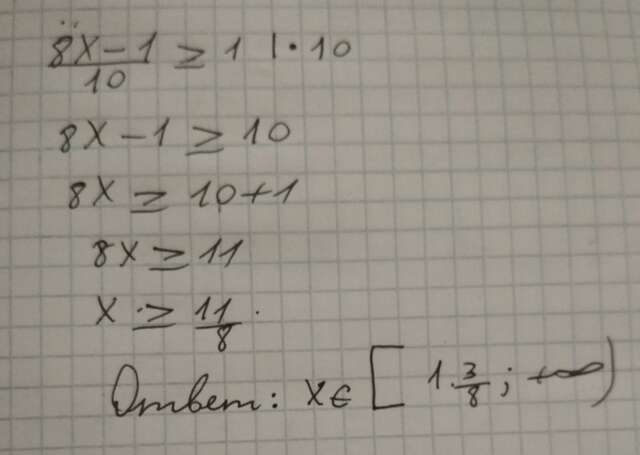 (8x-1)/10 ≥ 1 | · 10
8x - 1 ≥ 10
8x ≥ 10+1
8x ≥ 11
x ≥ 11/8
Ответ: x ∈ [1 3/8; +∞)